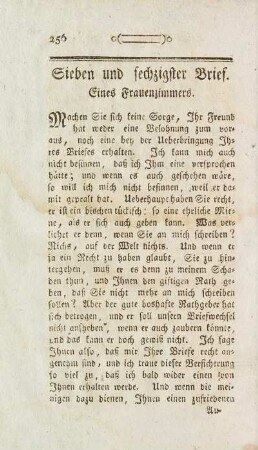 256
Sieben und sechzigster Brief.
Eines Frauenzimmers.
Machen Sie sich keine Sorge, Ihr Freund
hat weder eine Belohnung zum vor-
aus, noch eine bey der Ueberbringung Ih-
res Briefes erhalten. Ich kann mich auch
nicht besinnen, daß ich Ihm eine versprochen
hätte; und wenn es auch geschehen wäre,
so will ich mich nicht besinnen, weil er da-
mit geprahlt hat. Ueberhaupt haben Sie recht,
er ist ein bischen tückisch; so eine ehrliche Mie-
ne, als er sich auch geben kann. Was ver-
liehrt er denn, wenn Sie an mich schreiben?
Nichts, auf der Welt nichts. Und wenn er
ja ein Recht zu haben glaubt, Sie zu hin-
tergehen, muß er es denn zu meinem Scha-
den thun, und Ihnen den giftigen Rath ge-
ben, daß Sie nicht mehr an mich schreiben
sollen? Aber der gute boshafte Rathgeber hat
sich betrogen, und er soll unsern Briefwechsel
nicht aufheben, wenn er auch zaubern könnte,
und das kann er doch gewiß nicht. Ich sage
Ihnen also, daß mir Ihre Briefe recht an-
genehm sind, und ich traue dieser Versicherung
so viel zu, daß ich bald wieder einen von
Ihnen erhalten werde. Und wenn die mei-
nigen dazu dienen, Ihnen einen zufriedenen
Au-